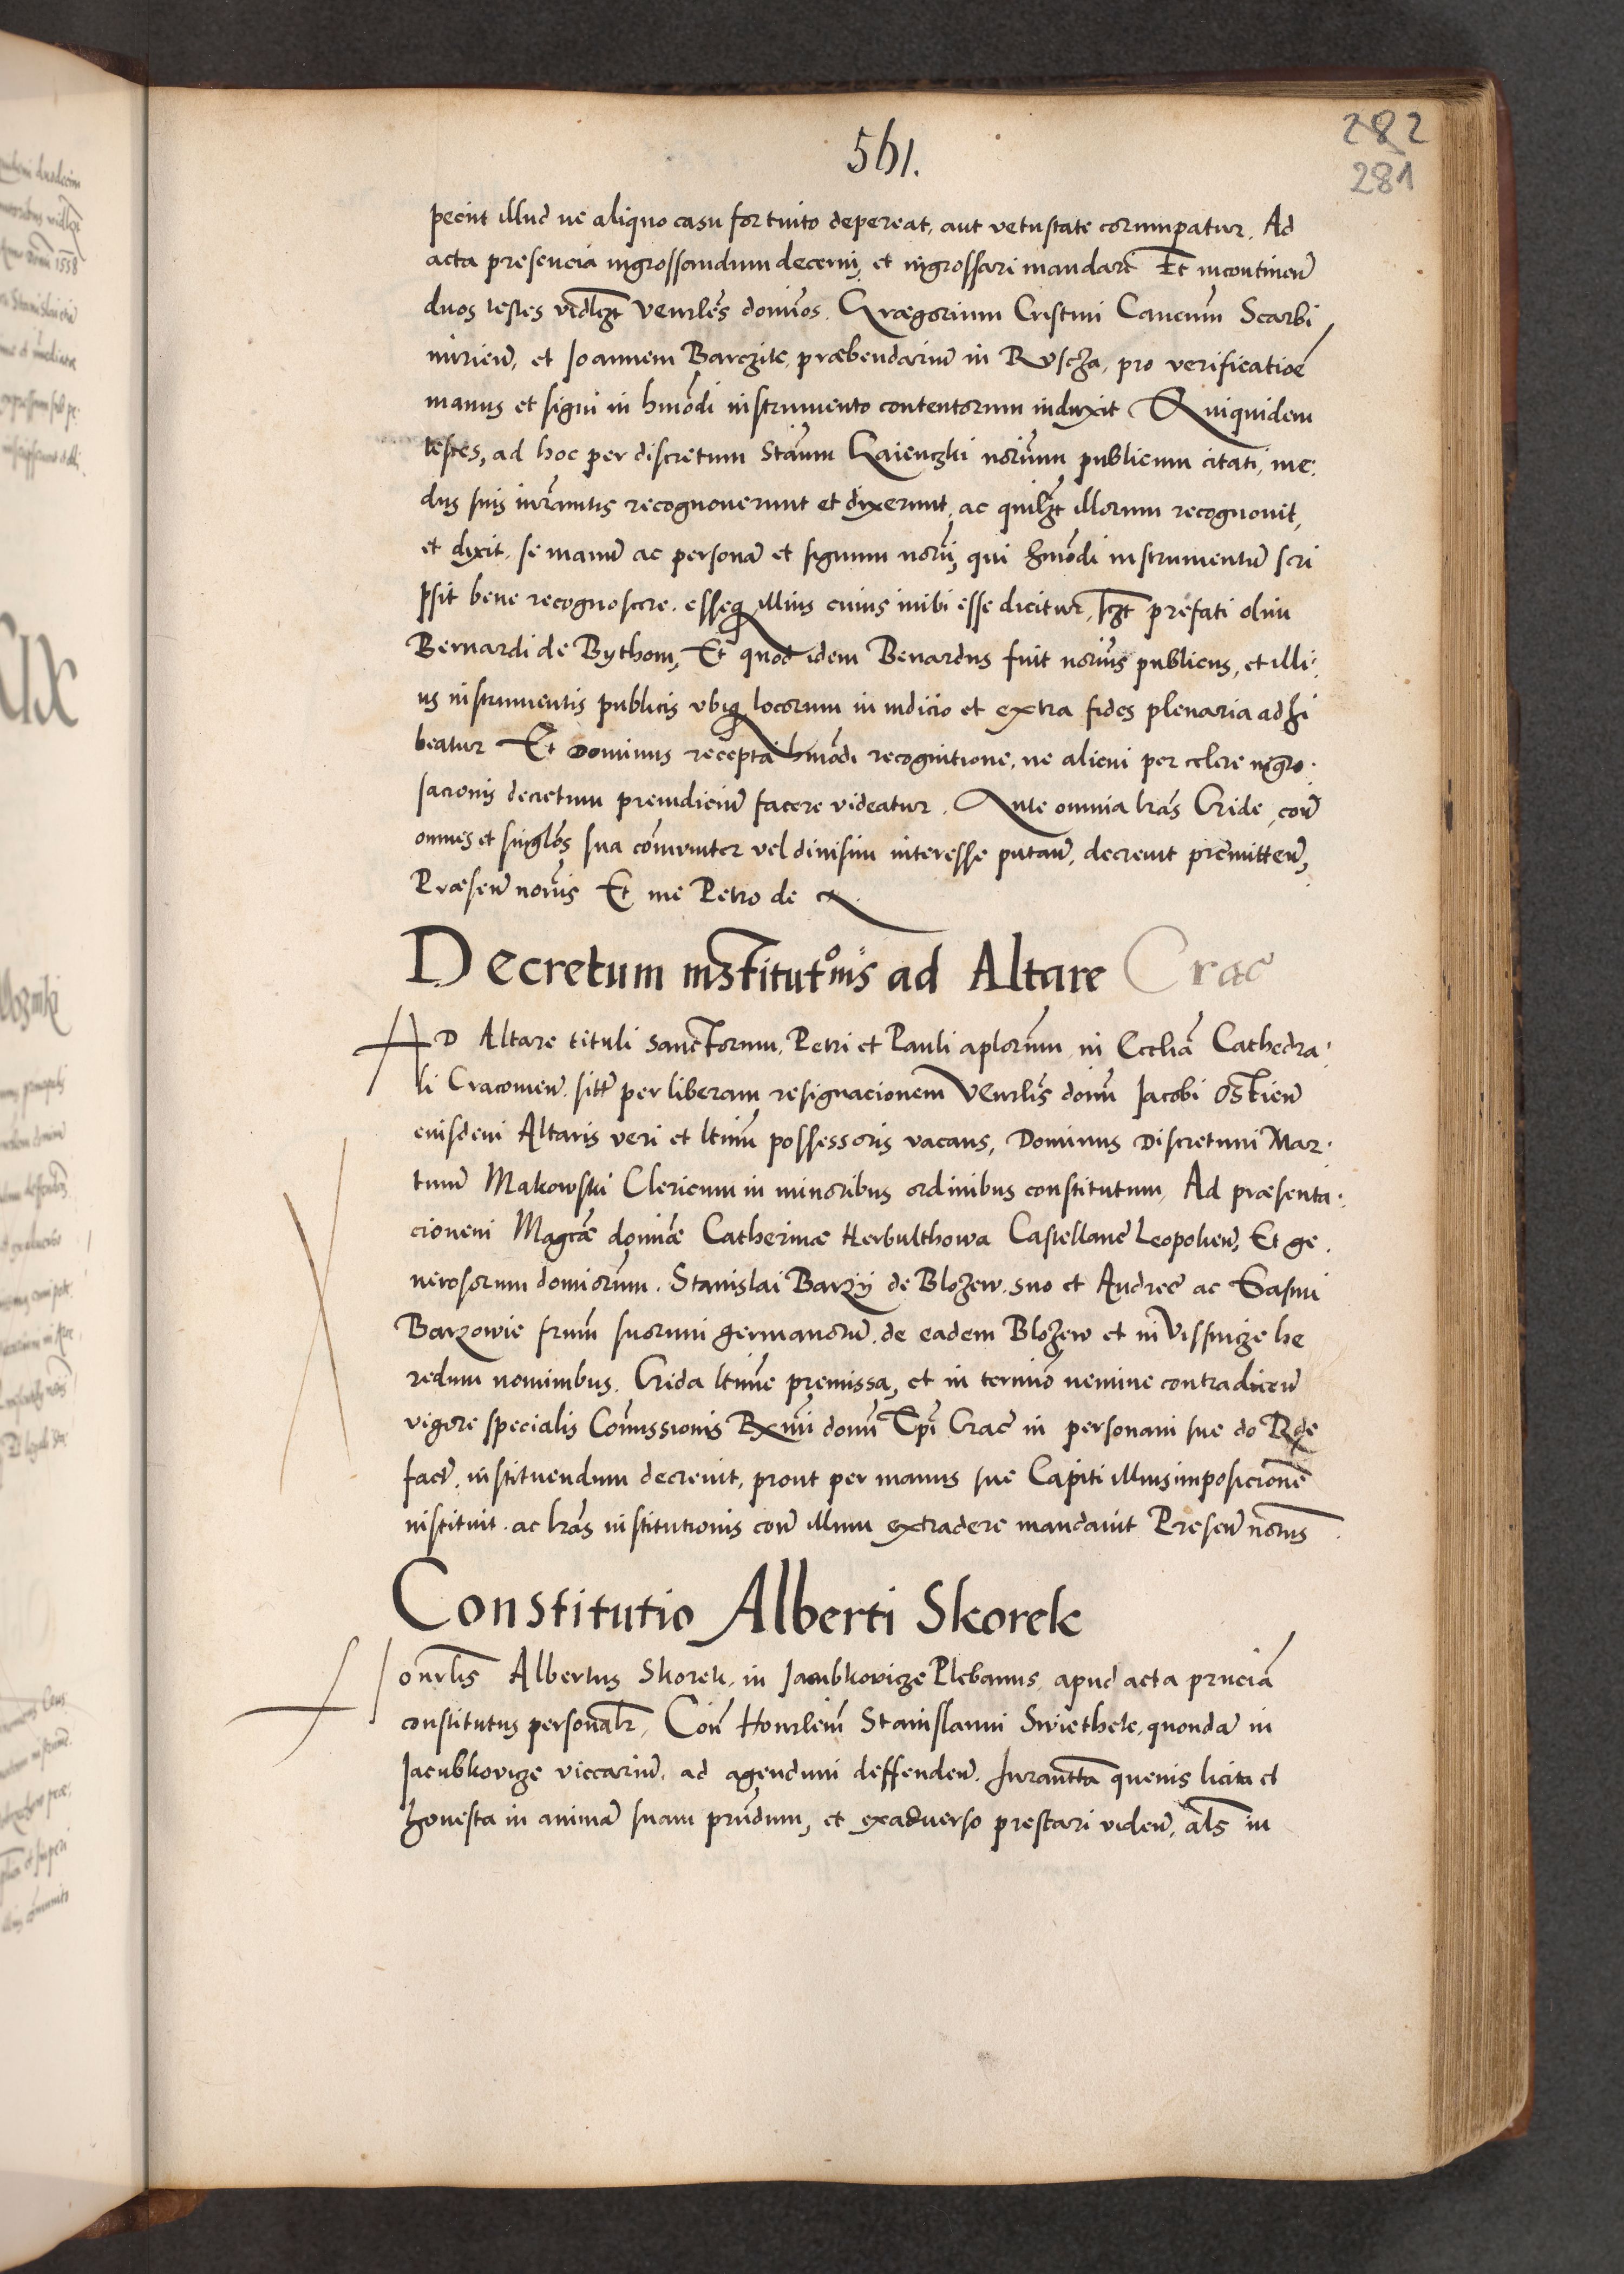 561.
282
281
peciit illud ne aliquo casu fortuito depereat, aut vetustate corrumpatur. Ad
acta presencia ingrossandum decerni, et ingrossari mandarē Et incontineñ
duos testes vidlꝫt Venrłes dominos. Græegorium Cristini Cancum Scarbi
mirieñ, et Joannem Barczik, præbendariũ in Ruscza, pro verificatiōe
manus et signi in hmõdi instrumento contentorum induxit Quiquidem
testes, ad hoc per discretum Stãum Gaienczki notũum publicum citati, me:
dys suis iurãmtis recognoverunt et dixerunt, ac quilꝫt illorum recognovit,
et dixit. se manũ ac personã et signum notrij, qui hmõdi instrumentũ scri
psit bene recognoscere. esseqꝫ illius cuius inibi esse dicitur, scꝫt prefati olim
Bernardi de Bythom, Et quod idem Benardus fuit noriũs publicus, et illi:
us instrumentis publicis ubiqꝫ locorum in iudicio et extra fides plenaria adhi
beatur Et Dominus recepta hmõdi recognitione, ne alicui per celere ingro:
sacionis decretum preiudiciũ facere videatur. Ante omnia lrãs Cride, coñ
omnes et singłos sua cõmuniter vel divisim interesse putañ, decrevit premitteñ,
Præseñ noriis Et me Petro de &.
Decretum institutõnis ad Altare Crac
AD Altare tituli Sanctorum, Petri et Pauli apłorum in Eccliã Cathedra:
li Cracovieñ. sitt̃ per liberam resignacionem Venrłis domi Jacobi Ostieñ
eiusdem Altaris veri et ltimi possessoris vacans, Dominus Discretum Mar:
tinũ Makowski Clericum in minoribus ordinibus constitutum, Ad præsenta:
cionem Magcæ dominæ Catherinæ Herbulthowa Castellanē Leopolieñ, Et ge:
nerosorum dominorum. Stanislai Barzij de Blozew. suo et Andreē ac Gasmi
Barzowie frum suorum germanorũ. de eadem Blozew et in Vissnicze he
redum nominibus. Crida ltime premissa, et in termino nemine contradiceñ
vigore specialis Comissionis Rxmi domi Epi Crac̃ in personam sue do Rde
fact̃. instituendum decrevit, prout per manus sue Capiti illius imposicionē
instituit. ac lrãs institutionis coñ illum extradere mandavit Preseñ noriis.
Constitutio Alberti Skorek
Honrłis Albertus Skorek, in Jacubkovicze Plebanus, apud acta prnciã
constitutus personalr̃, Coñ Honrłem Stanislaum Swiethele, quondã in
Jacubkovicze viccariũ, ad agendum deffendeñ. Jurãmtta quevis licita et
honesta in animã suam prẽdum, et exadverso prestari videñ, als in